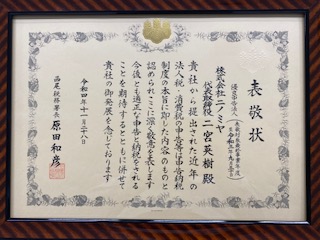 表敬状
優良申告法人
株式会社ニノミヤ
代表取締役 二宮英樹 殿
貴社から提出された近年の
法人税・消費税の申告等は申告納税
制度の本旨に即した内容のものと
認められここに深く敬意を表します
今後とも適正な申告と納税をされる
ことを期待するとともに併せて
貴社の御発展を念じております
令和四年十一月二十八日
西尾税務署長 原田和彦